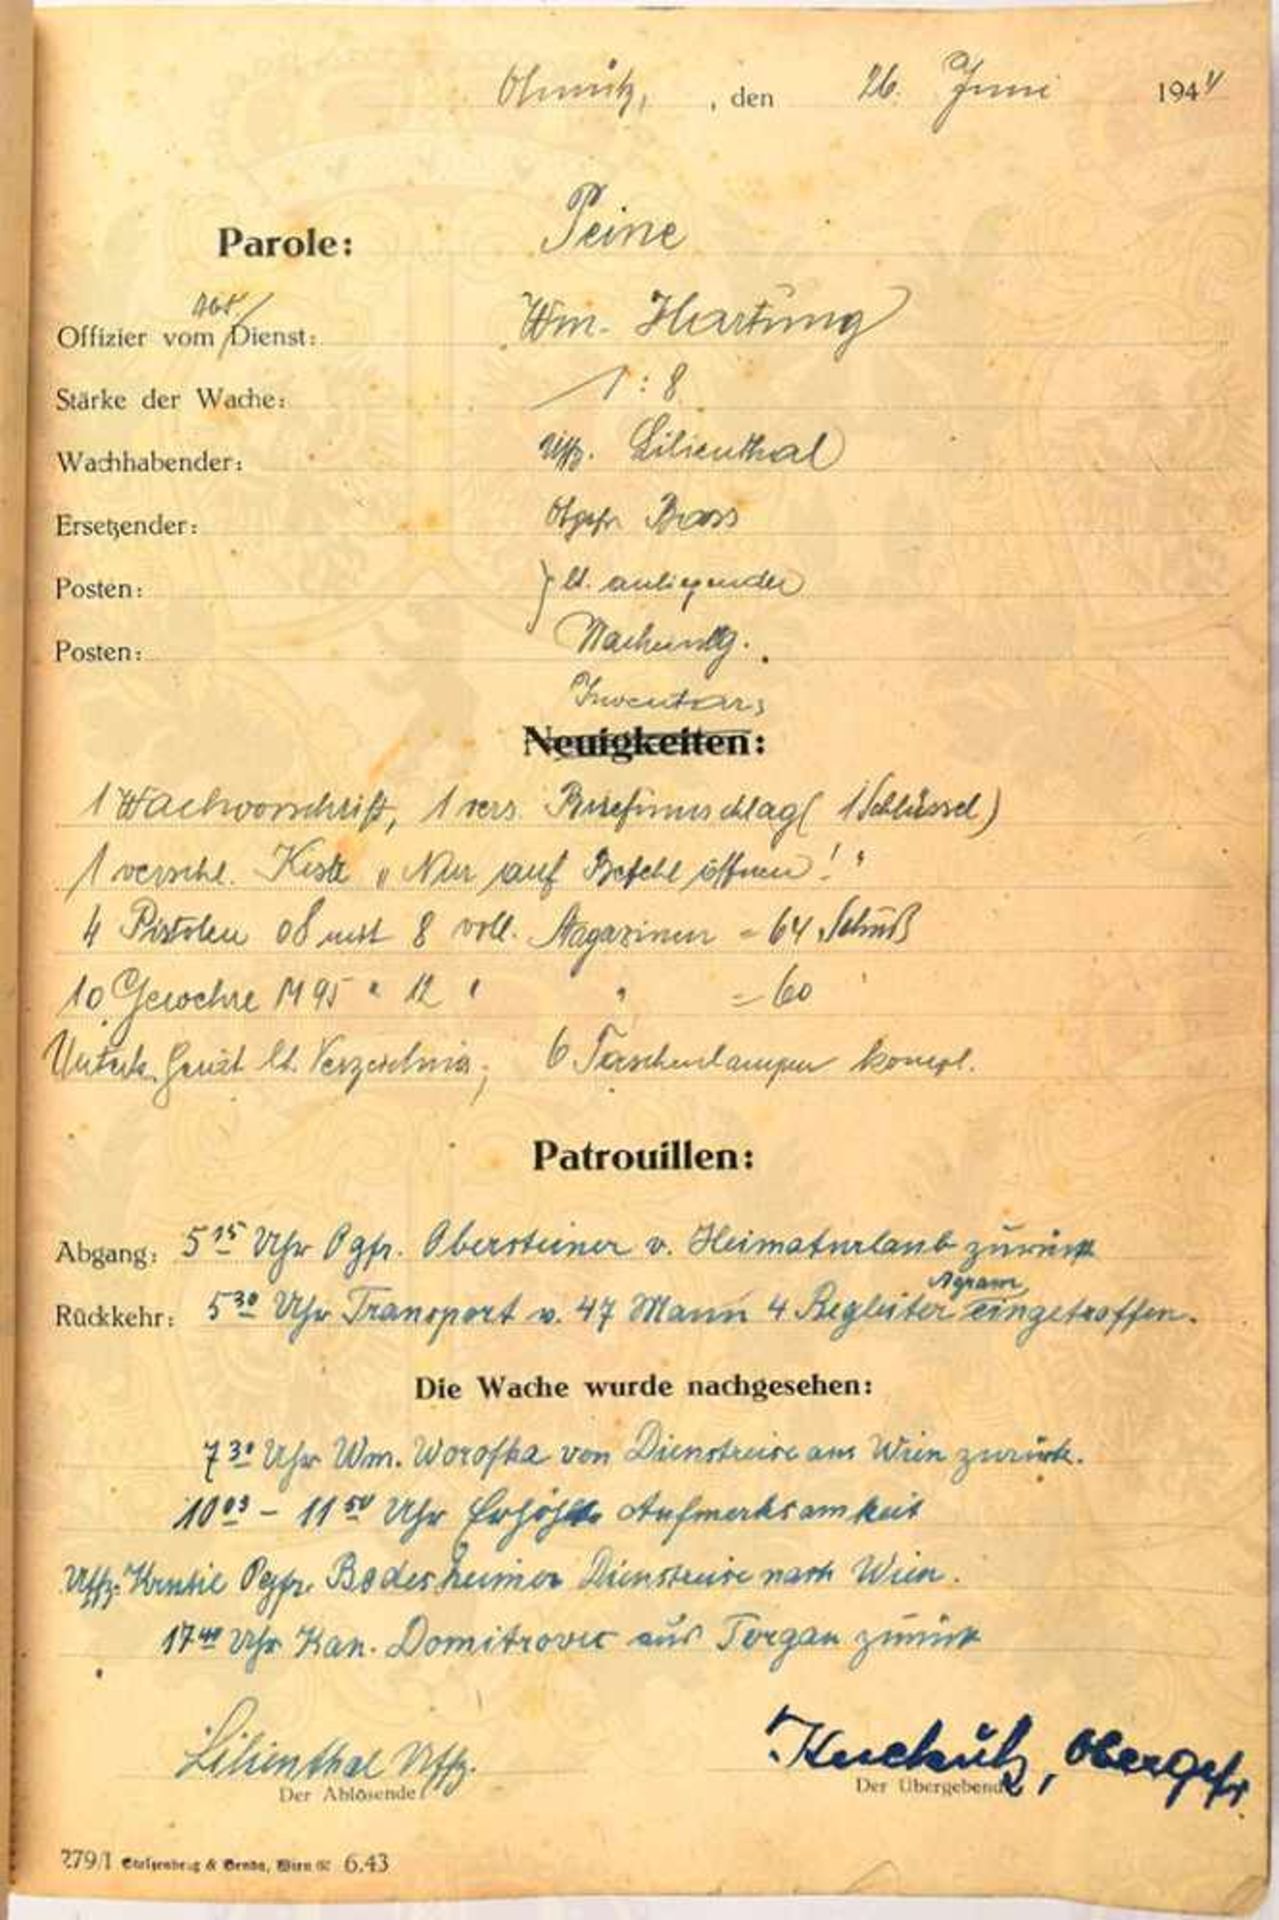 Olmütz, , den 26. Juni 1944
Parole: Peine
Offizier vom Dienst: Wm. Hartung
Stärke der Wache: 1 : 8
Wachhabender: Uffz. Lilienthal
Ersetzender: Obgefr. Brass
Posten: } lt. anliegender
Posten:
Inventar:
Neuigkeiten:
1 Wachvorschrift, 1 vers. Briefumschlag (1 Schlüssel)
1 verschl. Kiste "Nur auf Befehl öffnen!"
4 Pistolen 08 mit 8 voll. Magazinen = 64 Schuß
10 Gewehre M 95 " 12 " " = 60 '
Gerät lt. Verzeichnis, 6 Taschenlampen kompl.
Patrouillen:
Abgang: 5 15 Uhr Ogfr. Obersteiner v. Heimaturlaub zurück
Agram
Rückkehr: 5 30 Uhr Transport v. 47 Mann 4 Begleiter eingetroffen.
Die Wache wurde nachgesehen:
7 30 Uhr Wm. Worofka von Dienstreise aus Wien zurück.
10 03 - 11 50 Uhr Erhöhte Aufmerksamkeit
Uffz. Ogfr. Bodesheimer Dienstreise nach Wien.
17 40 Uhr Kan. Domitrovic aus Torgau zurück
Lilienthal Uffz. Obergefr.
Der Ablösende Der Übergebende
279/1 Wien 6.43